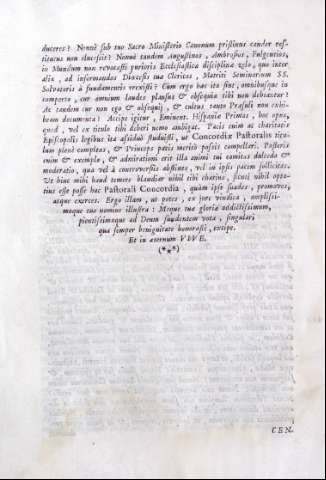 duceres? Nonnè sub tuo Sacro Ministerio Canonum pristinus candor res-
titutus non eluceseit? Nonnè tandem Augustinos, Ambrosios, Fulgentios,
in Mundum non revocasti purioris Ecclesiasticæ disciplinæ zelo, quo inter
alia, ad informandos Diœcesis tuæ Clericos, Matriti Seminarium SS.
Salvatoris à fundamentis erexisti? Cum ergo hæc ita sint, omnibusque in
comperto, cur omnium laudes plausus & obsequia tibi non debeantur?
At tandem cur non ego & obsequij, & cultus tanto Præsuli non exhi-
beam documenta? Accipe igitur, Eminent. Hispaniæ Primas, hoc opus,
quod, vel ex titulo tibi deberi nemo ambiget. Pacis enim ac charitatis
Episcopalis legibus ita assiduè studuisti, ut Concordiæ Pastoralis titu-
lum planè compleas, & Princeps pacis meritò possis compellari. Posteris
enim & exemplo, & admirationi erit illa animi tui comitas dulcedo &
moderatio, qua vel à controversiis abstines, vel in ipsis pacem pellicitas.
Ut hinc mihi haud temere blandiar nihil tibi charius, sicuti nihil opta-
tius esse posse hac Pastorali Concordia, quàm ipse suades, promoves,
atque exerces. Ergo illam, ut potes, ex jure vindica, amplissi-
moque tuo nomine illustra: Meque tuæ gloriæ addictissimum,
pientissimaque ad Deum fundentem vota, singulari
qua semper benignitate honorasti, excipe.
Et in æternum VIVE.
(***)
CEN-